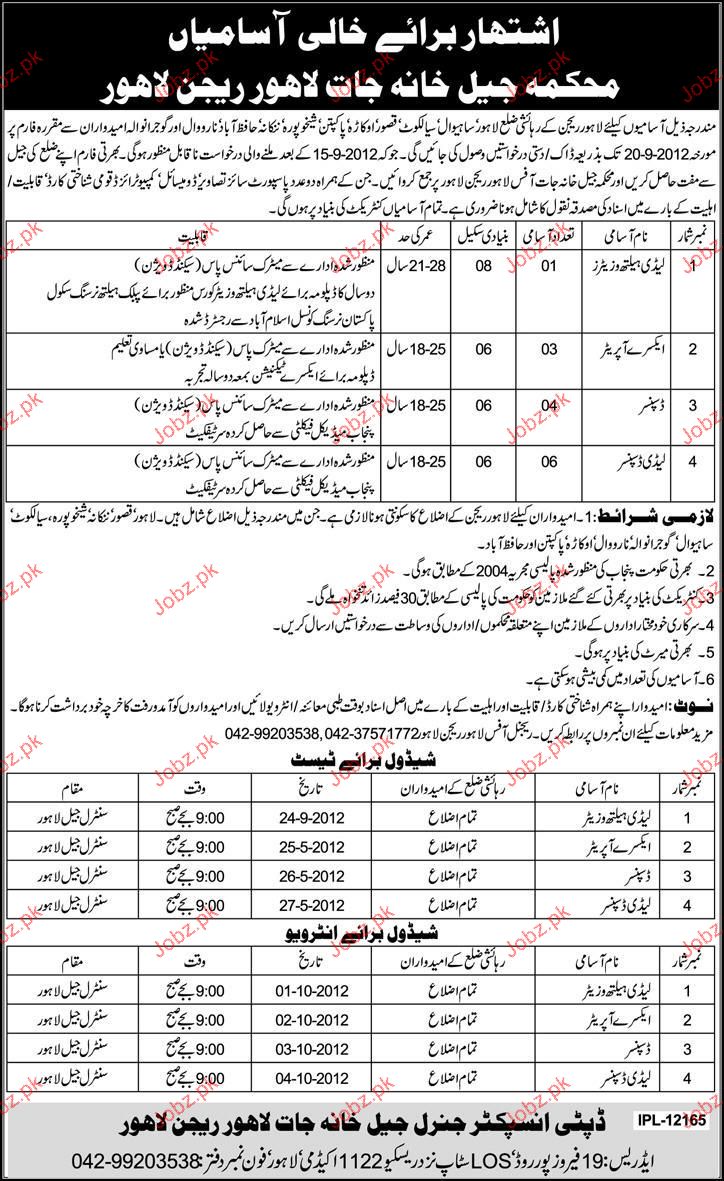 اشتہار برائے خالی آسامیاں
محکمہ جیل خانہ جات لاہور ریجن لاہور
مندرجہ ذیل آسامیوں کیلئے لاہور ریجن کے رہائشی ضلع لاہور، ساہیوال، سیالکوٹ، قصور، اوکاڑہ، پاکپتن، شیخوپورہ، ننکانہ، حافظ آباد، نارووال اور گوجرانوالہ امیدواران سے مقررہ فارم پر
مورخہ 20-9-2012 تک بذریعہ ڈاک/دستی درخواستیں وصول کی جائیں گی۔ جو کہ 15-9-2012 کے بعد ملنے والی درخواست ناقابل منظور ہوگی۔ بھرتی فارم اپنے ضلع کی جیل
سے مفت حاصل کریں اور محکمہ جیل خانہ جات آفس لاہور ریجن لاہور پر جمع کروائیں۔ جن کے ہمراہ دو عدد پاسپورٹ سائز تصاویر، ڈومیسائل، کمپیوٹرائزڈ قومی شناختی کارڈ، قابلیت/
اہلیت کے بارے میں اسناد کی مصدقہ نقول کا شامل ہونا ضروری ہے۔ تمام آسامیاں کنٹریکٹ کی بنیاد پر ہوں گی۔
نمبر شمار نام آسامی تعداد آسامی بنیادی سکیل عمر کی حد قابلیت
1 لیڈی ہیلتھ وزیٹرز 01 08 21-28 سال منظور شدہ ادارے سے میٹرک سائنس پاس (سیکنڈ ڈویژن)
دو سال کا ڈپلومہ برائے لیڈی ہیلتھ وزیٹر کورس منظور برائے پبلک ہیلتھ نرسنگ سکول
پاکستان نرسنگ کونسل اسلام آباد سے رجسٹرڈ شدہ
2 ایکسرے آپریٹر 03 06 18-25 سال منظور شدہ ادارے سے میٹرک پاس (سیکنڈ ڈویژن) یا مساوی تعلیم
ڈپلومہ برائے ایکسرے ٹیکنیشن بمعہ دو سالہ تجربہ
3 ڈسپنسر 04 06 18-25 سال منظور شدہ ادارے سے میٹرک سائنس پاس (سیکنڈ ڈویژن)
پنجاب میڈیکل فیکلٹی سے حاصل کردہ سرٹیفکیٹ
4 لیڈی ڈسپنسر 06 06 18-25 سال منظور شدہ ادارے سے میٹرک سائنس پاس (سیکنڈ ڈویژن)
پنجاب میڈیکل فیکلٹی سے حاصل کردہ سرٹیفکیٹ
لازمی شرائط: 1۔ امیدواران کیلئے لاہور ریجن کے اضلاع کا سکونتی ہونا لازمی ہے۔ جن میں مندرجہ ذیل اضلاع شامل ہیں۔ لاہور، قصور، ننکانہ، شیخوپورہ، سیالکوٹ،
ساہیوال، گوجرانوالہ، نارووال، اوکاڑہ، پاکپتن اور حافظ آباد۔
2۔ بھرتی حکومت پنجاب کی منظور شدہ پالیسی مجریہ 2004 کے مطابق ہوگی۔
3۔ کنٹریکٹ کی بنیاد پر بھرتی کئے گئے ملازمین کو حکومت کی پالیسی کے مطابق 30 فیصد زائد تنخواہ ملے گی۔
4۔ سرکاری خود مختار اداروں کے ملازمین اپنے متعلقہ محکموں/اداروں کی وساطت سے درخواستیں ارسال کریں۔
5۔ بھرتی میرٹ کی بنیاد پر ہوگی۔
6۔ آسامیوں کی تعداد میں کمی بیشی ہو سکتی ہے۔
نوٹ: امیدوار اپنے ہمراہ شناختی کارڈ/قابلیت اور اہلیت کے بارے میں اصل اسناد بوقت طبی معائنہ/انٹرویو لائیں اور امیدواروں کو آمدورفت کا خرچہ خود برداشت کرنا ہوگا۔
مزید معلومات کیلئے ان نمبروں پر رابطہ کریں۔ ریجنل آفس لاہور ریجن لاہور 042-37571772, 042-99203538
شیڈول برائے ٹیسٹ
نمبر شمار نام آسامی رہائشی ضلع کے امیدواران تاریخ وقت مقام
1 لیڈی ہیلتھ وزیٹر تمام اضلاع 24-9-2012 9:00 بجے صبح سنٹرل جیل لاہور
2 ایکسرے آپریٹر تمام اضلاع 25-5-2012 9:00 بجے صبح سنٹرل جیل لاہور
3 ڈسپنسر تمام اضلاع 26-5-2012 9:00 بجے صبح سنٹرل جیل لاہور
4 لیڈی ڈسپنسر تمام اضلاع 27-5-2012 9:00 بجے صبح سنٹرل جیل لاہور
شیڈول برائے انٹرویو
نمبر شمار نام آسامی رہائشی ضلع کے امیدواران تاریخ وقت مقام
1 لیڈی ہیلتھ وزیٹر تمام اضلاع 01-10-2012 9:00 بجے صبح سنٹرل جیل لاہور
2 ایکسرے آپریٹر تمام اضلاع 02-10-2012 9:00 بجے صبح سنٹرل جیل لاہور
3 ڈسپنسر تمام اضلاع 03-10-2012 9:00 بجے صبح سنٹرل جیل لاہور
4 لیڈی ڈسپنسر تمام اضلاع 04-10-2012 9:00 بجے صبح سنٹرل جیل لاہور
IPL-12165 ڈپٹی انسپکٹر جنرل جیل خانہ جات لاہور ریجن لاہور
ایڈریس: 19 فیروز پور روڈ، LOS سٹاپ نزد ریسکیو 1122 اکیڈمی، لاہور فون نمبر دفتر: 042-99203538
Jobz.pk